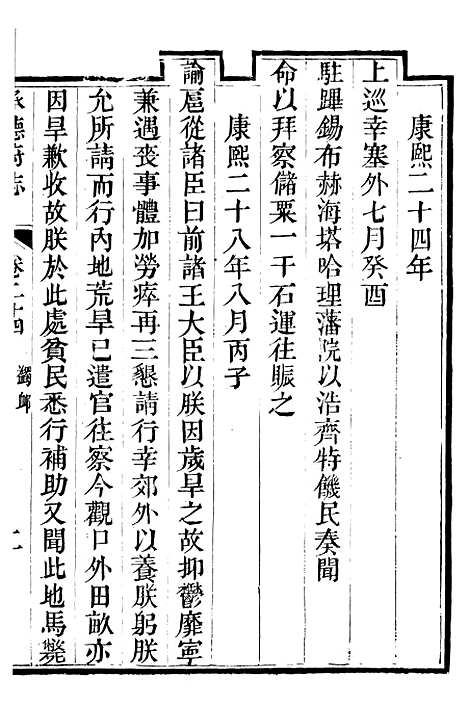 康熙二十四年
上巡幸塞外七月癸酉
駐蹕錫布赫海塔哈理藩院以浩齊特饑民奏聞
命以拜察儲粟一千石運往賑之
康熙二十八年八月丙子
諭扈從諸臣曰前諸王大臣以朕因歲旱之故抑鬱靡寧
兼遇喪事體加勞瘁再三懇請行幸郊外以養朕躬朕
允所請而行內地荒旱已遣官往察今觀口外田畝亦
因旱歉收故朕於此處貧民悉行補助又聞此地馬斃
承德府志 卷二十四 蠲卹 二